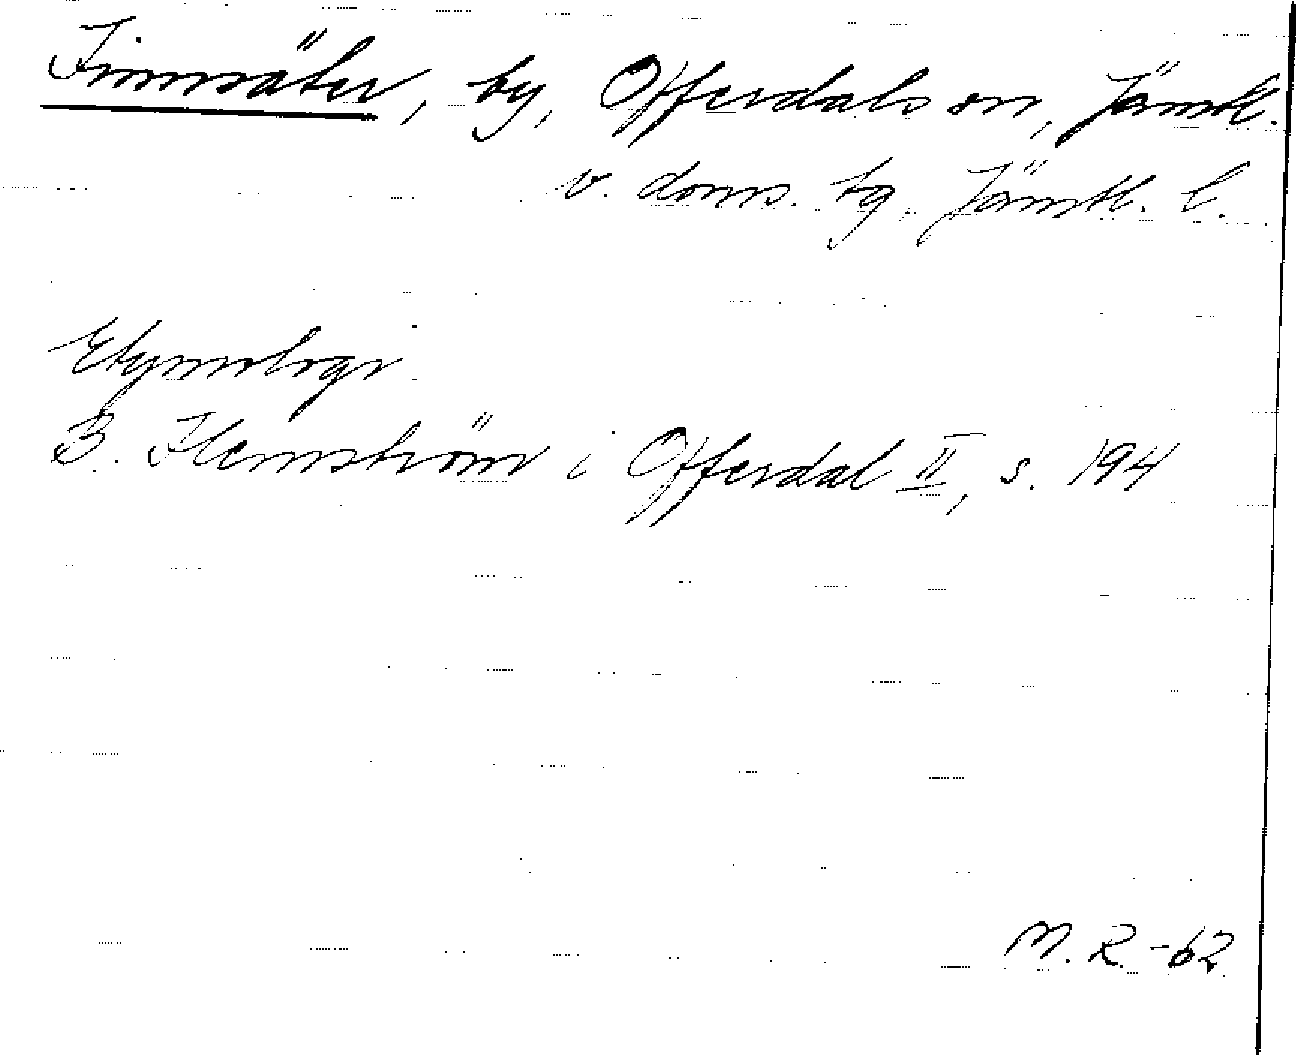 Finnsäter, by, Offerdals sn, Jämtl.
v. doms. tg, Jämtl. l.
Etymologi
B. Flemström i Offerdal II, s. 194
M. R. -62